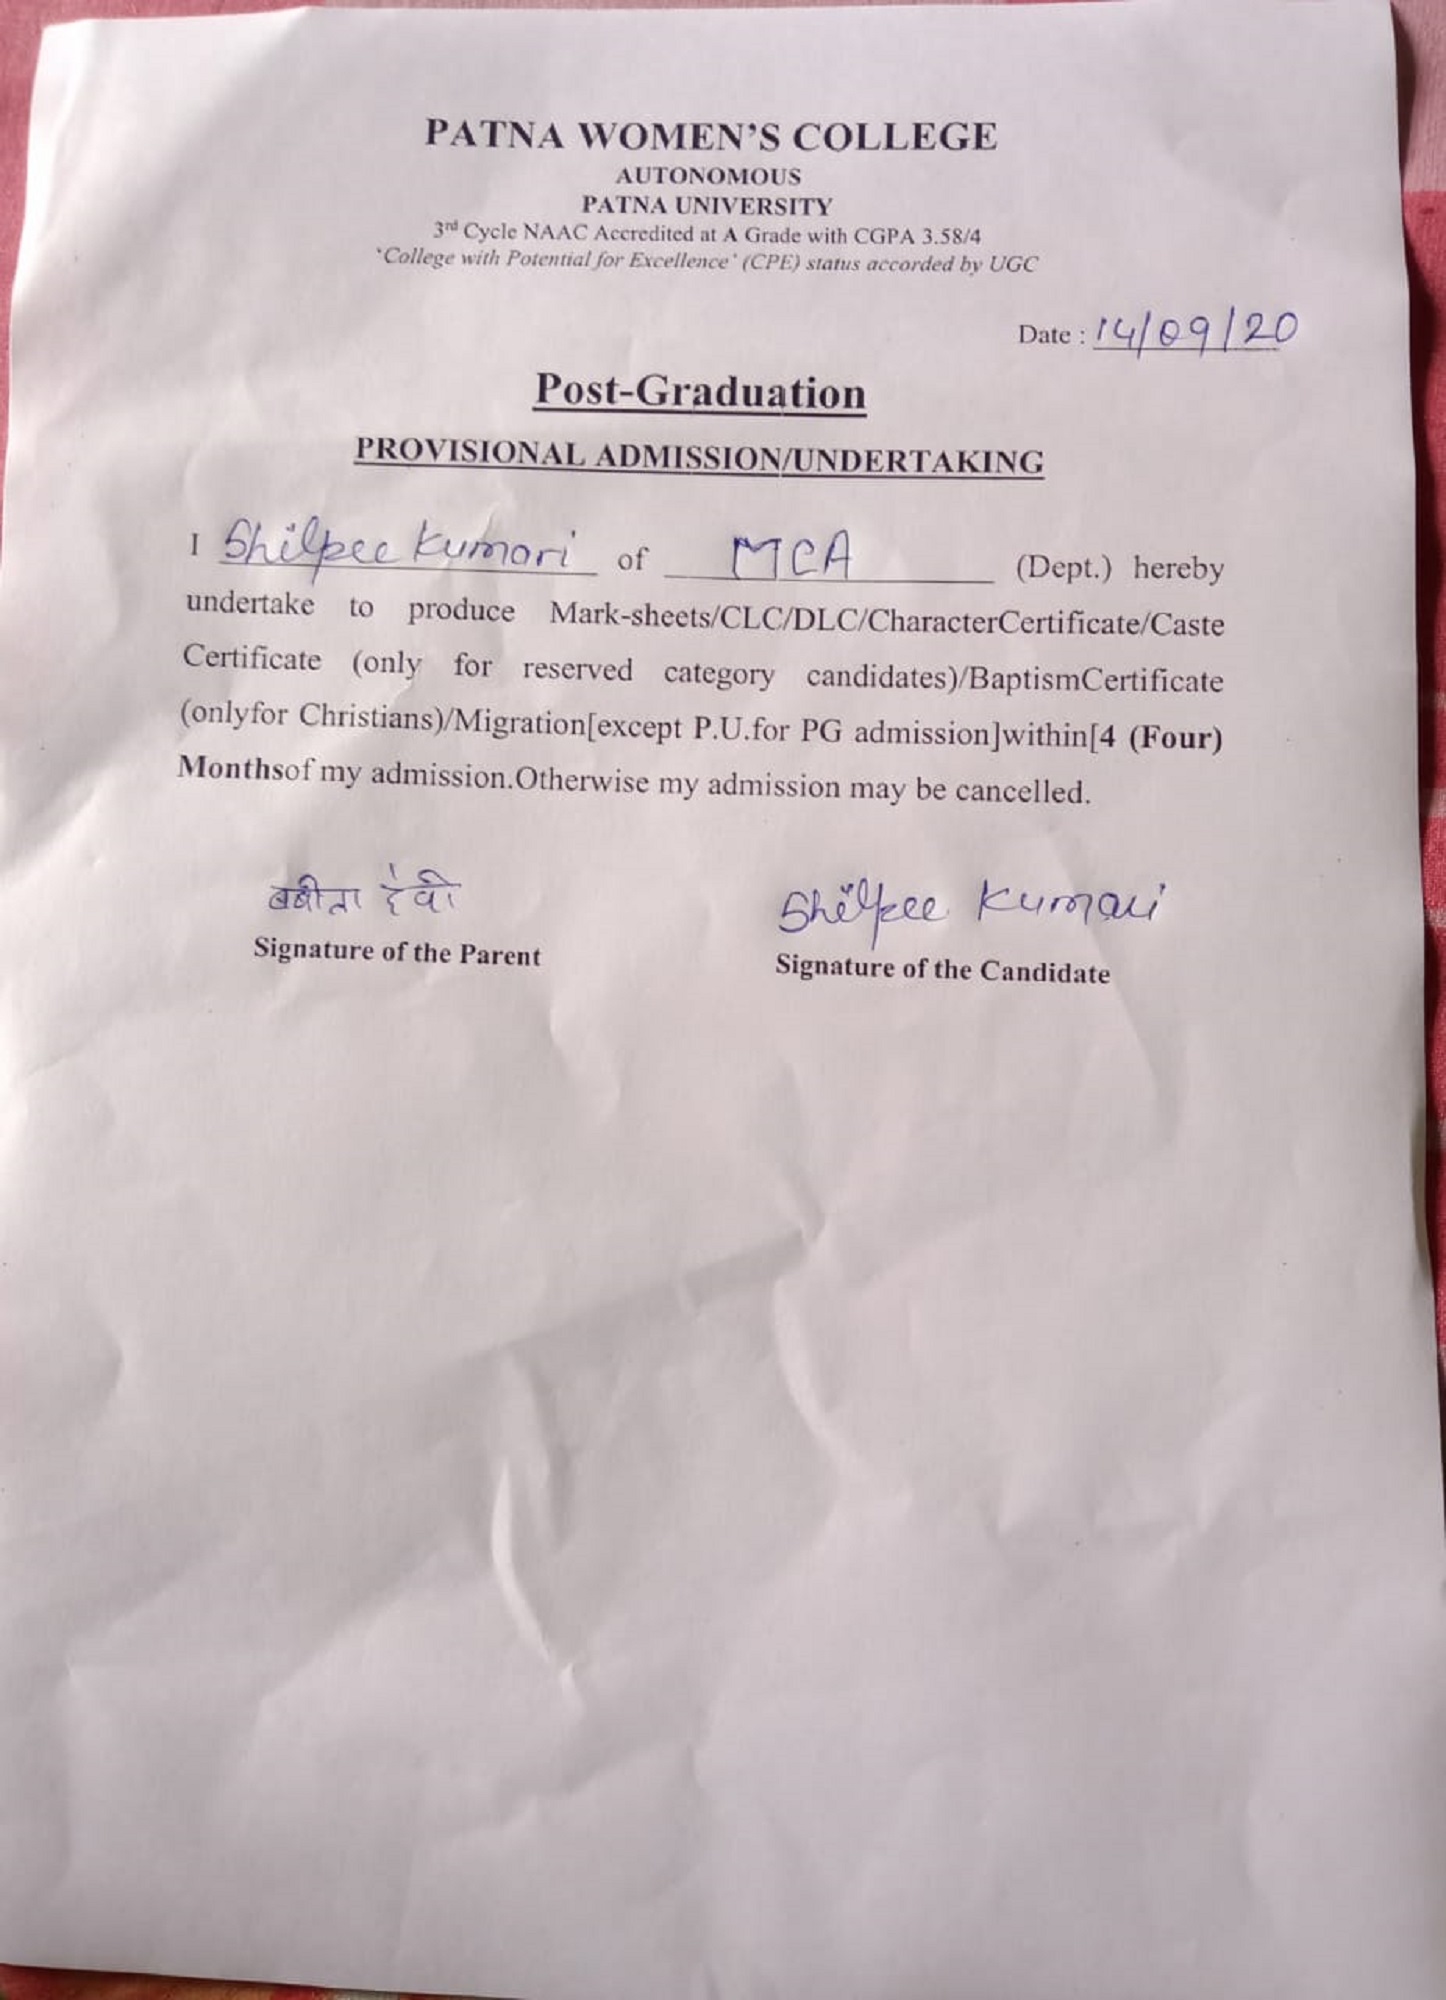 PATNA WOMEN'S COLLEGE
AUTONOMOUS
PATNA UNIVERSITY
3rd Cycle NAAC Accredited at A Grade with CGPA 3.58/4
'College with Potential for Excellence' (CPE) status accorded by UGC
Date : 14/09/20
Post-Graduation
PROVISIONAL ADMISSION/UNDERTAKING
I Shilpee Kumari of MCA (Dept.) hereby
undertake to produce Mark-sheets/CLC/DLC/CharacterCertificate/Caste
Certificate (only for reserved category candidates)/BaptismCertificate
(onlyfor Christians)/Migration[except P.U.for PG admission]within[4 (Four)
Monthsof my admission.Otherwise my admission may be cancelled.
बबीता देवी Shilpee Kumari
Signature of the Parent Signature of the Candidate